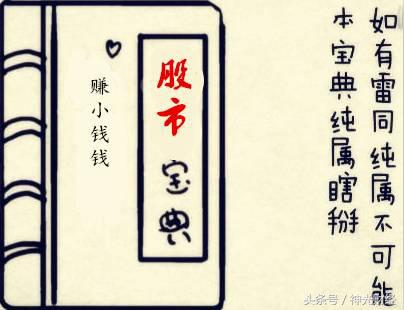 如有雷同纯属不可能
本宝典纯属瞎掰
股市宝典
赚小钱钱
头条号/神光财经